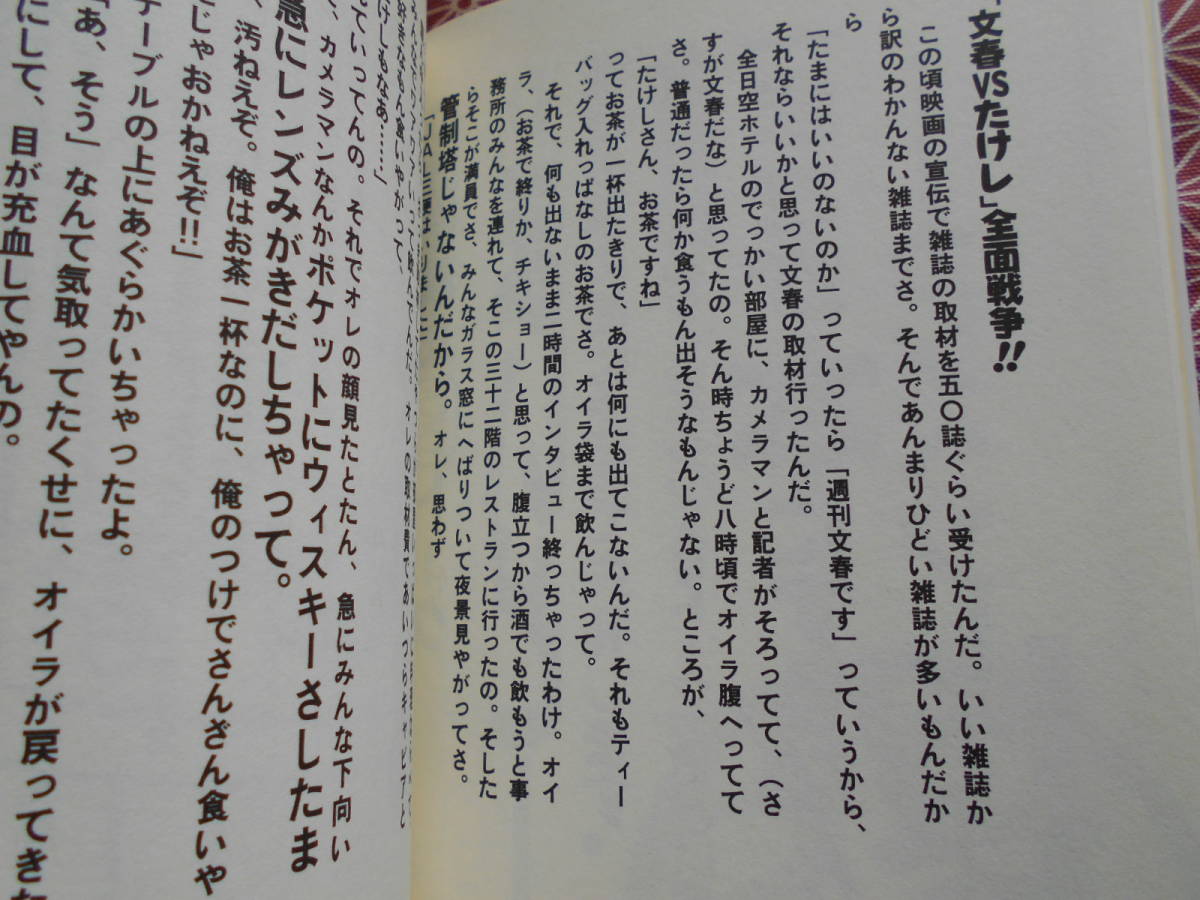 「文春VSたけし」全面戦争!!
この頃映画の宣伝で雑誌の取材を五〇誌ぐらい受けたんだ。いい雑誌か
ら訳のわかんない雑誌までさ。そんであんまりひどい雑誌が多いもんだか
ら
「たまにはいいのないのか」っていったら「週刊文春です」っていうから、
それならいいかと思って文春の取材行ったんだ。
全日空ホテルのでっかい部屋に、カメラマンと記者がそろってて、（さ
すが文春だな）と思ってたの。そん時ちょうど八時頃でオイラ腹へってて
さ。普通だったら何か食うもん出そうなもんじゃない。ところが、
「たけしさん、お茶ですね」
ってお茶が一杯出たきりで、あとは何にも出てこないんだ。それもティー
バッグ入れっぱなしのお茶でさ。オイラ袋まで飲んじゃって。
それで、何も出ないまま二時間のインタビュー終っちゃったわけ。オイ
ラ、（お茶で終りか、チキショー）と思って、腹立つから酒でも飲もうと事
務所のみんなを連れて、そこの三十二階のレストランに行ったの。そした
らそこが満員でさ、みんなガラス窓にへばりついて夜景見やがってさ。
管制塔じゃないんだから。オレ、思わず
オレの取材費であいつらキャビアと
けしもなあ……」
していってんの。それでオレの顔見たとたん、急にみんな下向い
、カメラマンなんかポケットにウィスキーさしたま
急にレンズみがきだしちゃって。
、汚ねえぞ。俺はお茶一杯なのに、俺のつけでさんざん食いや
じゃおかねえぞ!!」
テーブルの上にあぐらかいちゃったよ。
「あ、そう」なんて気取ってたくせに、オイラが戻ってきた
にして、目が充血してやんの。